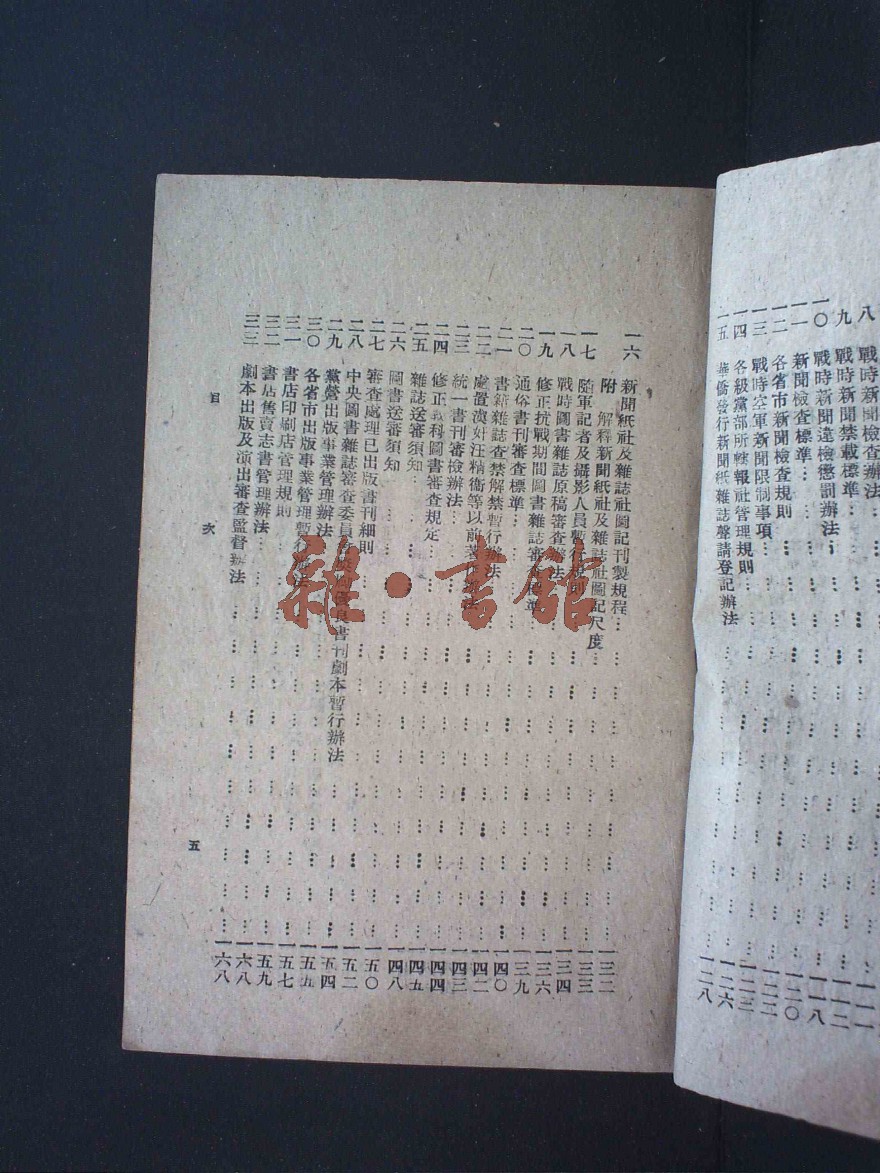 八
九 戰時新聞禁載標準 一一二
一〇 戰時新聞違檢懲罰辦法 一一八
一一 新聞檢查標準 一二〇
一二 各省市新聞檢查規則 一二二
一三 戰時空軍新聞限制事項 一二三
一四 各級黨部所轄報社管理規則 一二六
一五 華僑發行新聞紙雜誌聲請登記辦法 一二八
一六 新聞紙社及雜誌社圖記刊製規程 一三二
附 解釋新聞紙社及雜誌社圖記尺度 一三三
一七 隨軍記者及攝影人員暫行規則 一三四
一八 戰時圖書雜誌原稿審查辦法 一三六
一九 修正抗戰期間圖書雜誌審查標準 一三九
二〇 通俗書刊審查標準 一四〇
二一 書籍雜誌查禁解禁暫行辦法 一四二
二二 處置漢奸汪精衛等以前著作辦法 一四三
二三 統一書刊審檢辦法 一四四
二四 修正教科圖書審查規定 一四五
二五 雜誌送審須知 一四八
二六 圖書送審須知 一五〇
二七 審查處理已出版書刊細則 一五二
二八 中央圖書雜誌審查委員會 優良書刊劇本暫行辦法 一五四
二九 黨營出版事業管理辦法 一五五
三〇 各省市出版事業管理暫行辦法 一五七
三一 書店印刷店管理規則 一五九
三二 書店售賣志書管理辦法 一六八
三三 劇本出版及演出審查監督辦法 一六八
目 次
五
雜·書館